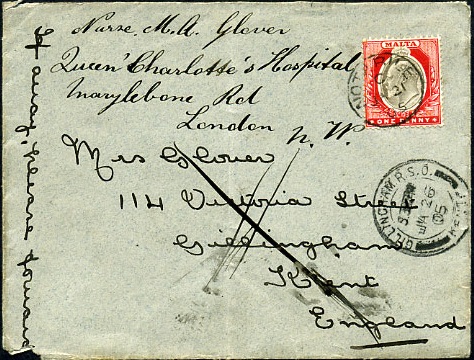 Nurse M. A. Glover
Queen Charlotte's Hospital
Marylebone Rd
London N. W.
If away, please forward
MALTA
ONE PENNY
Mrs Glover
114 Victoria Street
Gillingham
Kent
England
GILLINGHAM R.S.O.
JA 26
05
KENT